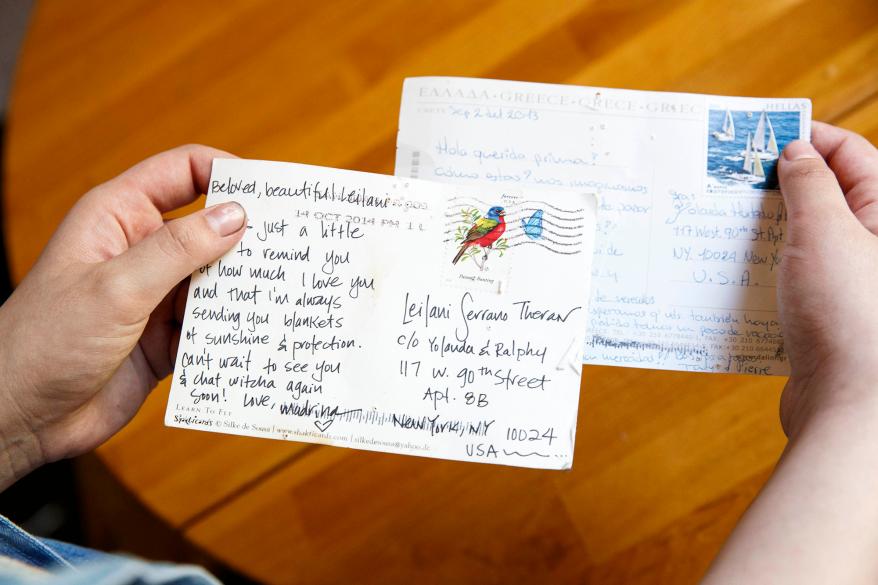 Beloved, beautiful Leilani
14 OCT 2014 PM 1 L
- just a little
to remind you
of how much I love you
and that i'm always
sending you blankets
of sunshine & protection.
Can't wait to see you
& chat witcha again
Soon! Love, madrina
LEARN TO FLY
Shakticards © Silke de Sousa | www.shakticards.com | silkedesousa@yahoo.de
forever
Painted Bunting
Leilani Serrano Theran
c/o Yolanda & Ralphy
117 W. 90th Street
Apt. 8B
New York, NY 10024
USA
ΕΛΛΑΔΑ · GREECE · GREECE · GREEC
Sep 2 del 2013
HELLAS
Hola querida prima!
Cómo estas? nos imaginamos
Yolanda
117 West. 90th St. Apt
NY. 10024. New Yor
U.S.A.
también haya
un poco de